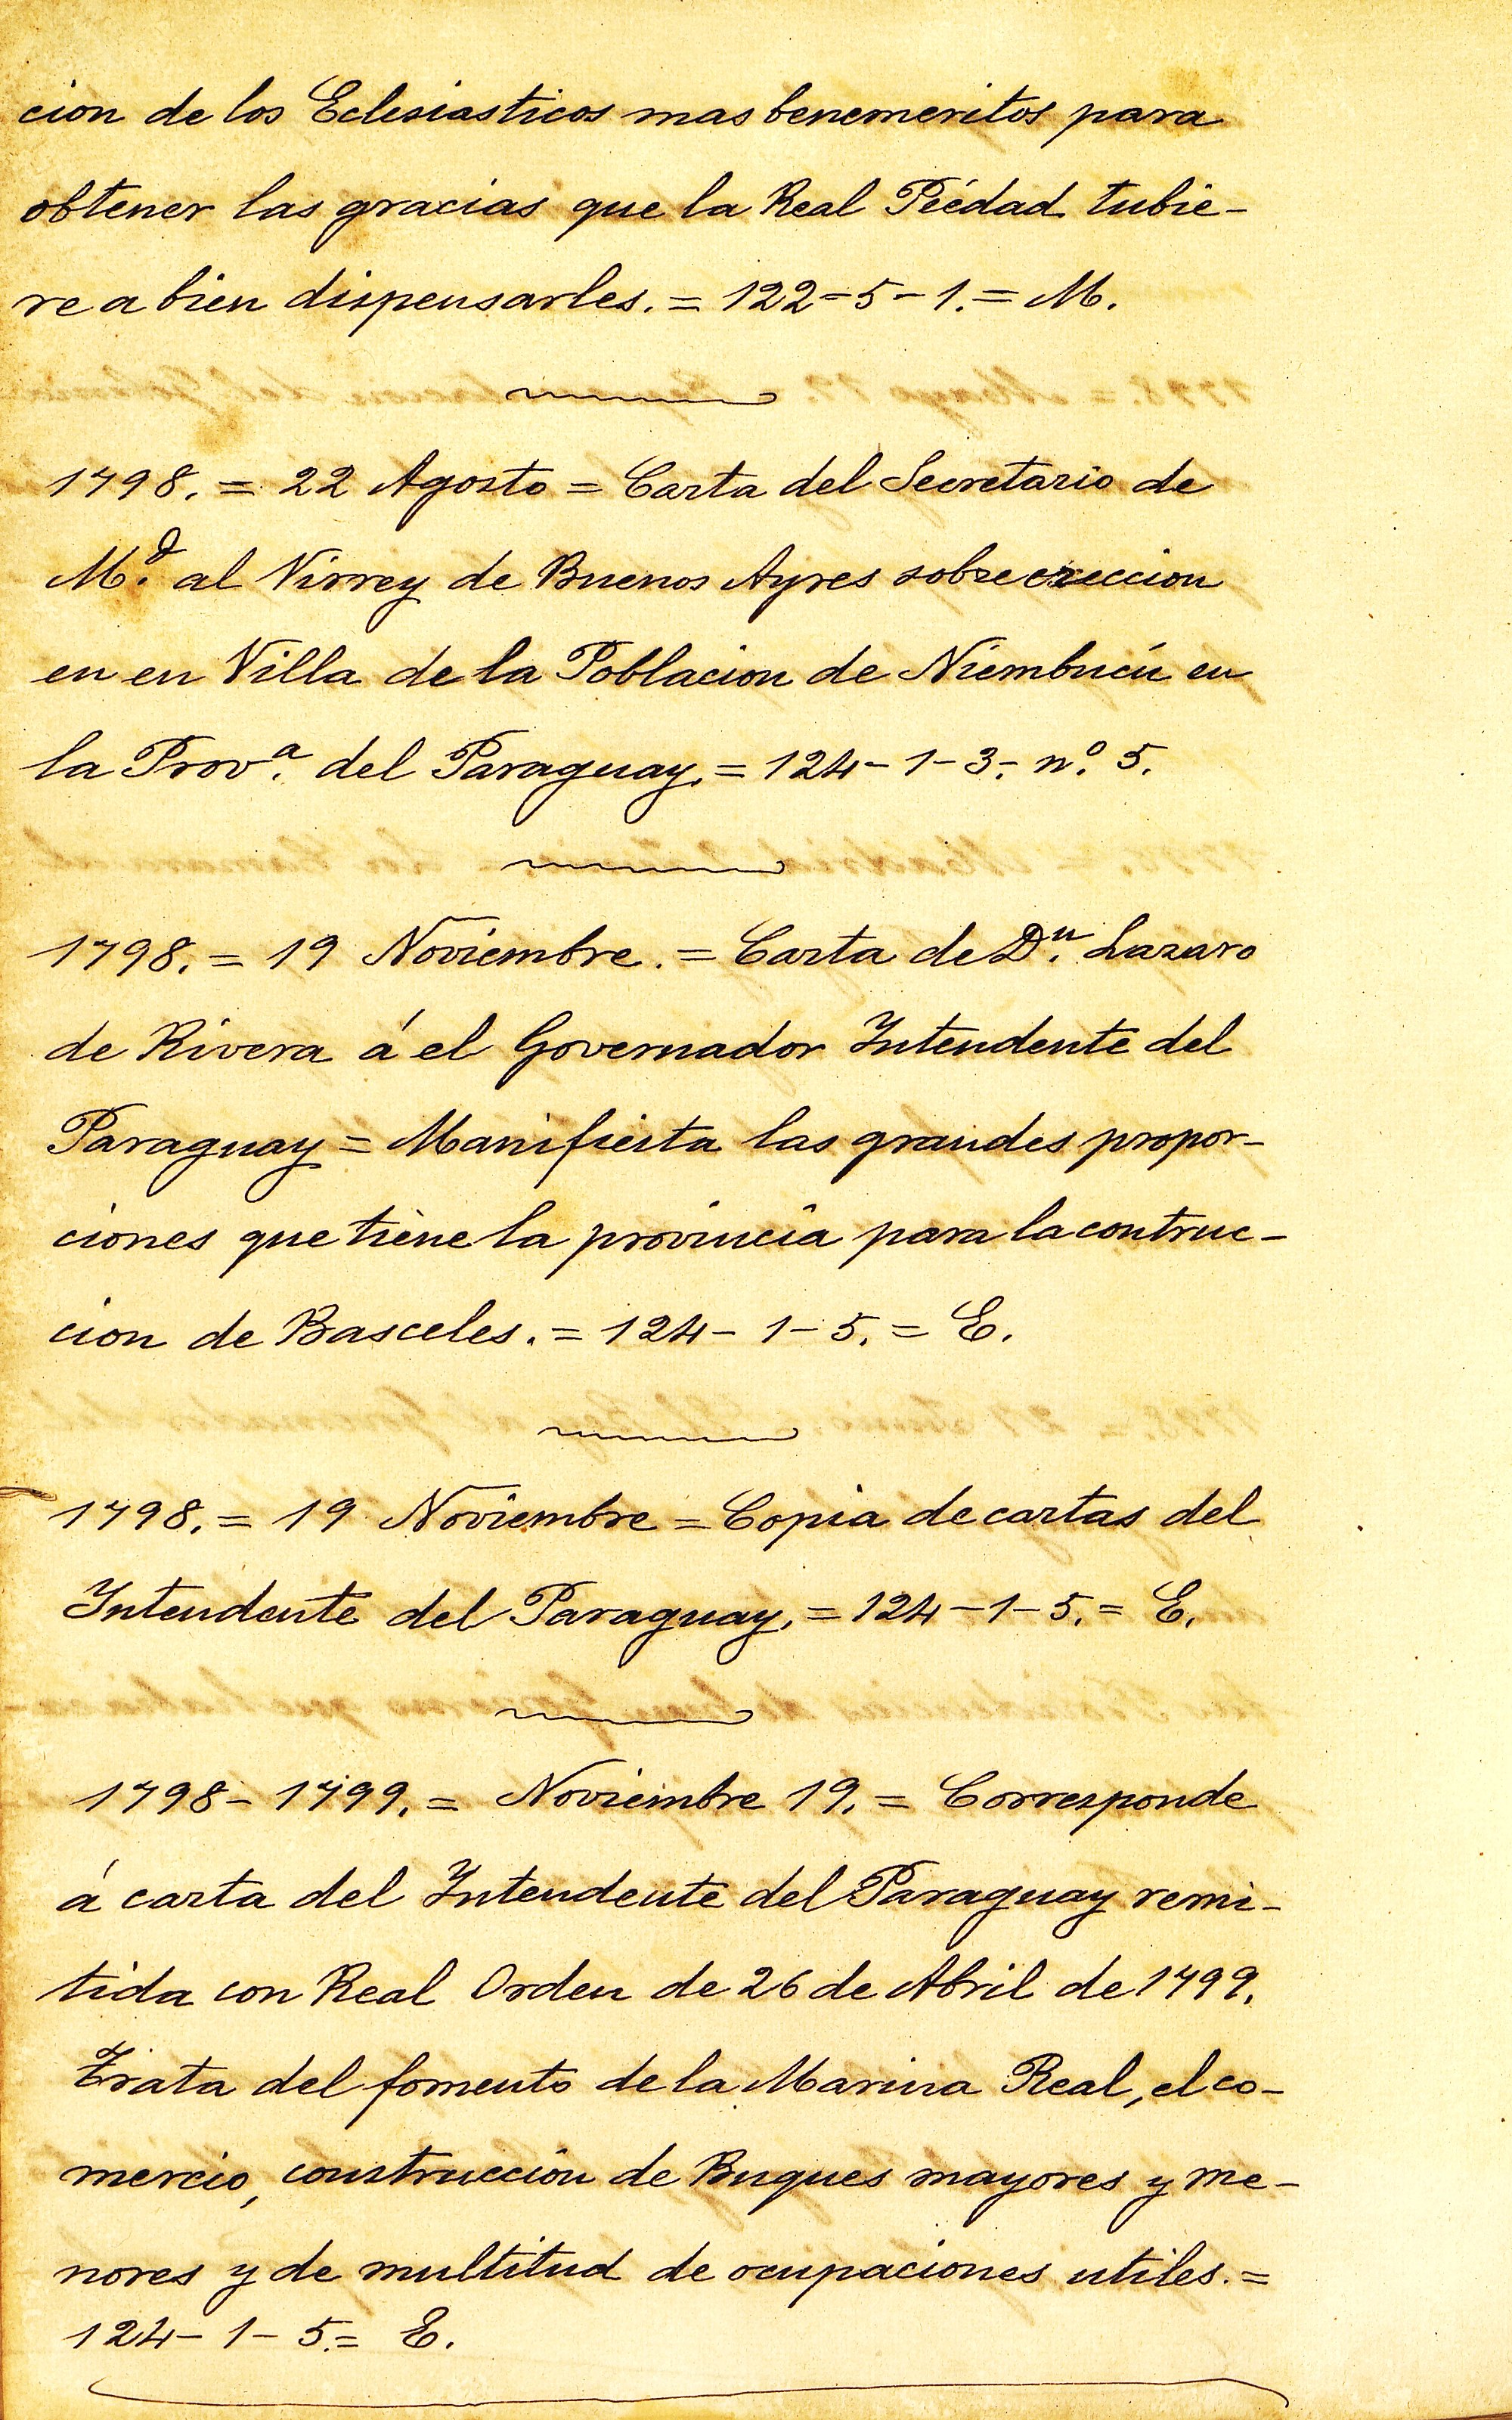 cion de los Eclesiasticos mas benemeritos para
obtener las gracias que la Real Piedad tubie-
re a bien dispensarles. = 122-5-1. = M.
1798. = 22 Agosto = Carta del Secretario de
M.d al Virrey de Buenos Ayres sobre ereccion
en en Villa de la Poblacion de Niembucú en
la Prov.a del Paraguay. = 124-1-3- n.o 5.
1798. = 19 Noviembre. = Carta de D.n Lazaro
de Rivera á el Governador Intendente del
Paraguay = Manifiesta las grandes propor-
ciones que tiene la provincia para la contruc-
cion de Basceles. = 124-1-5. = E.
1798. = 19 Noviembre = Copia de cartas del
Intendente del Paraguay. = 124-1-5. = E.
1798-1799. = Noviembre 19. = Corresponde
á carta del Intendente del Paraguay remi-
tida con Real Orden de 26 de Abril de 1799.
Trata del fomento de la Marina Real, el co-
mercio, construccion de Buques mayores y me-
nores y de multitud de ocupaciones utiles. =
124-1-5. = E.